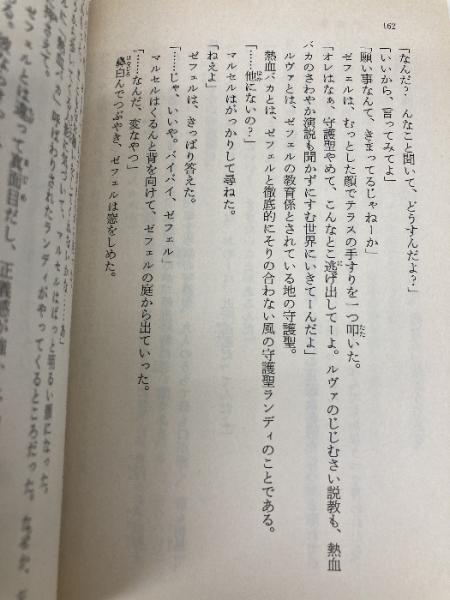 162
「なんだ? んなこと聞いて、どうすんだよ?」
「いいから、言ってみてよ」
「願い事なんて、きまってるじゃねーか」
ゼフェルは、むっとした顔でテラスの手すりを一つ叩いた。
「オレはなぁ、守護聖やめて、こんなとこ逃げ出してーよ。ルヴァのじじむさい説教も、熱血
バカのさわやか演説も聞かずにすむ世界にいきてーんだよ」
ルヴァとは、ゼフェルの教育係とされている地の守護聖。
熱血バカとは、ゼフェルと徹底的にそりの合わない風の守護聖ランディのことである。
「……他にないの?」
マルセルはがっかりして尋ねた。
「ねえよ」
ゼフェルは、きっぱり答えた。
「……じゃ、いいや。バイバイ、ゼフェル」
マルセルはくるんと背を向けて、ゼフェルの庭から出ていった。
「……なんだ、変なやつ」
んでつぶやき、ゼフェルは窓をしめた。
気づいて、マルセルはぱっと明るい顔になった。
されたランディがやってくるところだった。
ゼフェルとは違って真面目だし、正義感が強い